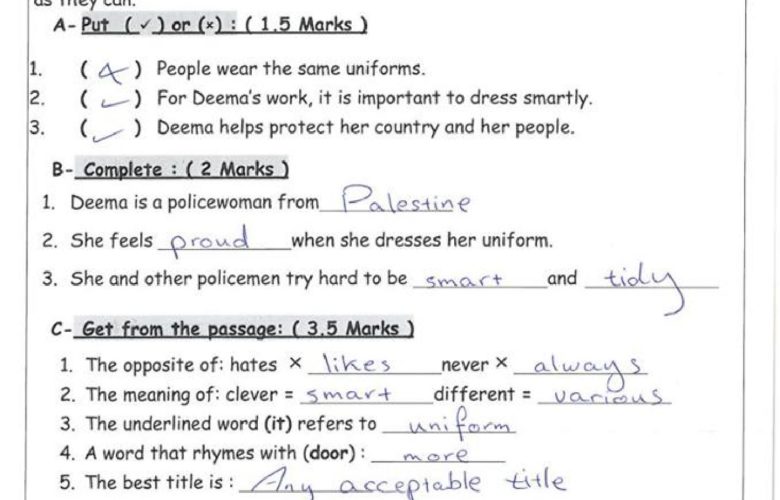 as they can.
A- Put (✓) or (×) : ( 1.5 Marks )
1. ( × ) People wear the same uniforms.
2. ( ✓ ) For Deema's work, it is important to dress smartly.
3. ( ✓ ) Deema helps protect her country and her people.
B- Complete : ( 2 Marks )
1. Deema is a policewoman from Palestine
2. She feels proud when she dresses her uniform.
3. She and other policemen try hard to be smart and tidy
C- Get from the passage: ( 3.5 Marks )
1. The opposite of: hates × likes never × always
2. The meaning of: clever = smart different = various
3. The underlined word (it) refers to uniform
4. A word that rhymes with (door) : more
5. The best title is : Any acceptable title